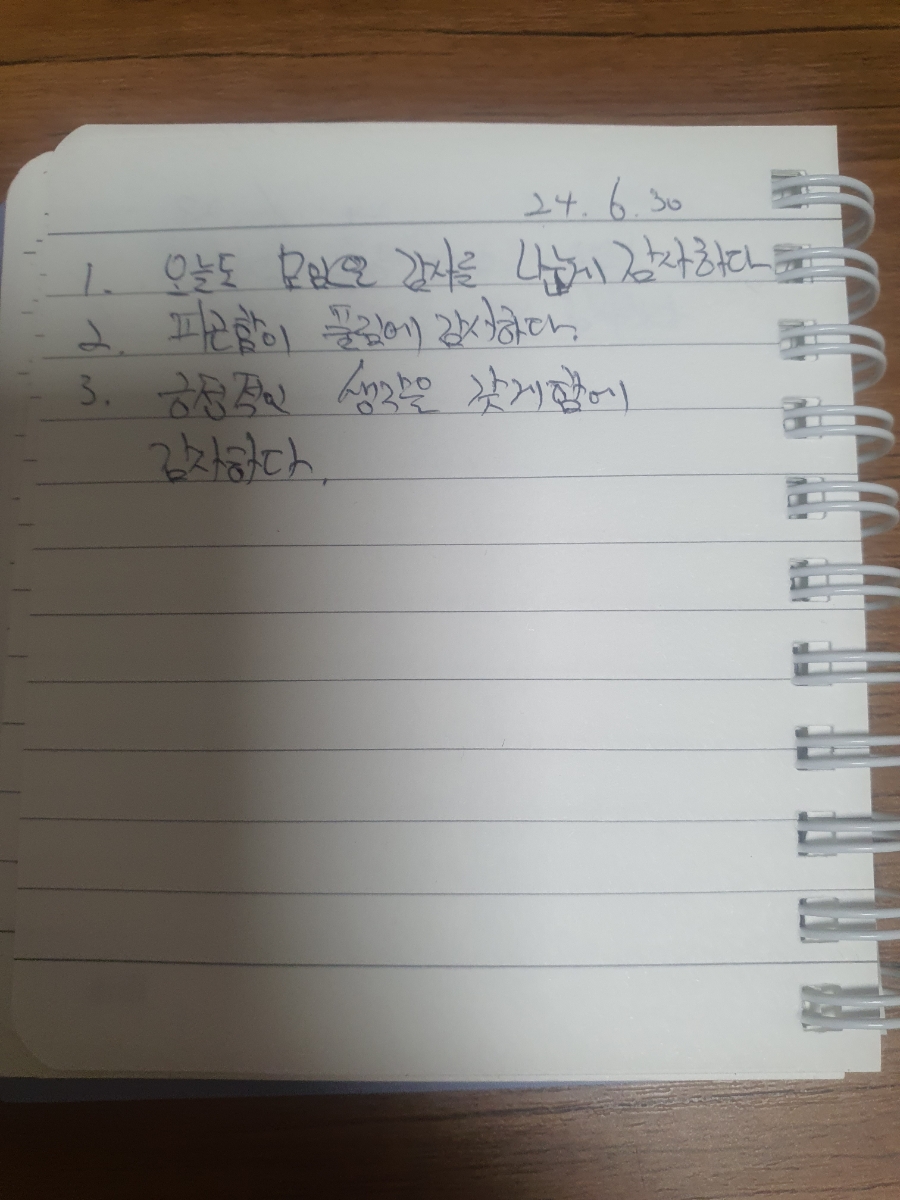 24. 6. 30
1. 오늘도 모임으로 감사를 나눔에 감사하다.
2. 피곤함이 풀림에 감사하다.
3. 긍정적인 생각을 갖게함에
감사하다.